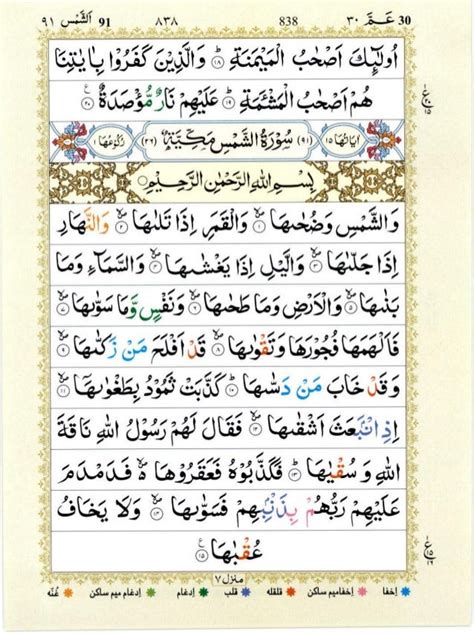 اَلشَّمْس ٩١ 91 ٨٣٨ 838 عَمَّ ٣٠ 30
اُولٰٓئِكَ اَصْحٰبُ الْمَيْمَنَةِ ۱۸ وَالَّذِيْنَ كَفَرُوْا بِاٰيٰتِنَا
هُمْ اَصْحٰبُ الْمَشْـَٔمَةِ ۱۹ عَلَيْهِمْ نَارٌ مُّؤْصَدَةٌ ۲۰
اٰيَاتُهَا ١٥ (٩١) سُوْرَةُ الشَّمْسِ مَكِّيَّةٌ (٢٦) رُكُوْعُهَا ١
بِسْمِ اللّٰهِ الرَّحْمٰنِ الرَّحِيْمِ
وَالشَّمْسِ وَضُحٰىهَا ۱ وَالْقَمَرِ اِذَا تَلٰىهَا ۲ وَالنَّهَارِ
اِذَا جَلّٰىهَا ۳ وَالَّيْلِ اِذَا يَغْشٰىهَا ۴ وَالسَّمَآءِ وَمَا
بَنٰىهَا ۵ وَالْاَرْضِ وَمَا طَحٰىهَا ۶ وَنَفْسٍ وَّمَا سَوّٰىهَا ۷
فَاَلْهَمَهَا فُجُوْرَهَا وَتَقْوٰىهَا ۸ قَدْ اَفْلَحَ مَنْ زَكّٰىهَا ۹
وَقَدْ خَابَ مَنْ دَسّٰىهَا ۱۰ كَذَّبَتْ ثَمُوْدُ بِطَغْوٰىهَا ۱۱
اِذِ انْۢبَعَثَ اَشْقٰىهَا ۱۲ فَقَالَ لَهُمْ رَسُوْلُ اللّٰهِ نَاقَةَ
اللّٰهِ وَسُقْيٰهَا ۱۳ فَكَذَّبُوْهُ فَعَقَرُوْهَا فَدَمْدَمَ
عَلَيْهِمْ رَبُّهُمْ بِذَنْۢبِهِمْ فَسَوّٰىهَا ۱۴ وَلَا يَخَافُ
عُقْبٰهَا ۱۵
منزل ٧
اِخفا اِخفامیم ساکن قلقله قلب اِدغام اِدغام میم ساکن غُنّه